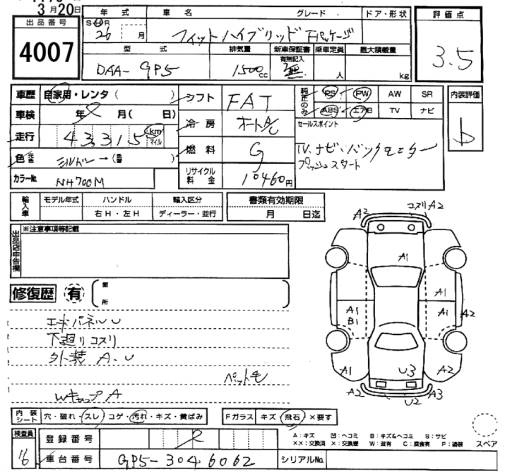 3月20日
出品番号
4007
年式 車名 グレード ドア・形状
26 月 フィットハイブリッド Fパッケージ
型式 排気量 新車保証書 乗車定員 最大積載量
有無記入
DAA-GP5 1500cc 人 kg
評価点
3.5
車歴 自家用・レンタ( )
車検 年 月
走行 43315 km マイル
色 シルバー → (番)
カラーNo. NH700M
シフト FAT
冷房 オートAC
燃料 G
リサイクル料金 10460円
PS PW AW SR
ABS エアB TV ナビ
セールスポイント
TV.ナビ.バックモニター
プッシュスタート
内装評価
b
輸入車 モデル年式 ハンドル 輸入区分 書類有効期限
右H・左H ディーラー・並行 月 日迄
出品店申告欄 ※注意事項等記載
修復歴 有 箇所
エンドパネルU
下廻りコスリ
外装A.U
ペット毛
WキャップA
内装シート 穴・破れ・スレ コゲ・汚れ・キズ・黄ばみ Fガラス キズ 飛石 ×要す
検査員 登録番号
16 車台番号 GP5-3046062 シリアルNo.
A2 コスリA2
A1
A1 A1
A1 B1 A1 A2
A1 U3 A1
A2 U2 A3
スペア
A:キズ 凹:ヘコミ B:キズ&ヘコミ S:サビ
××:交換済 ×:交換要 W:波有 C:腐食有 P:塗装